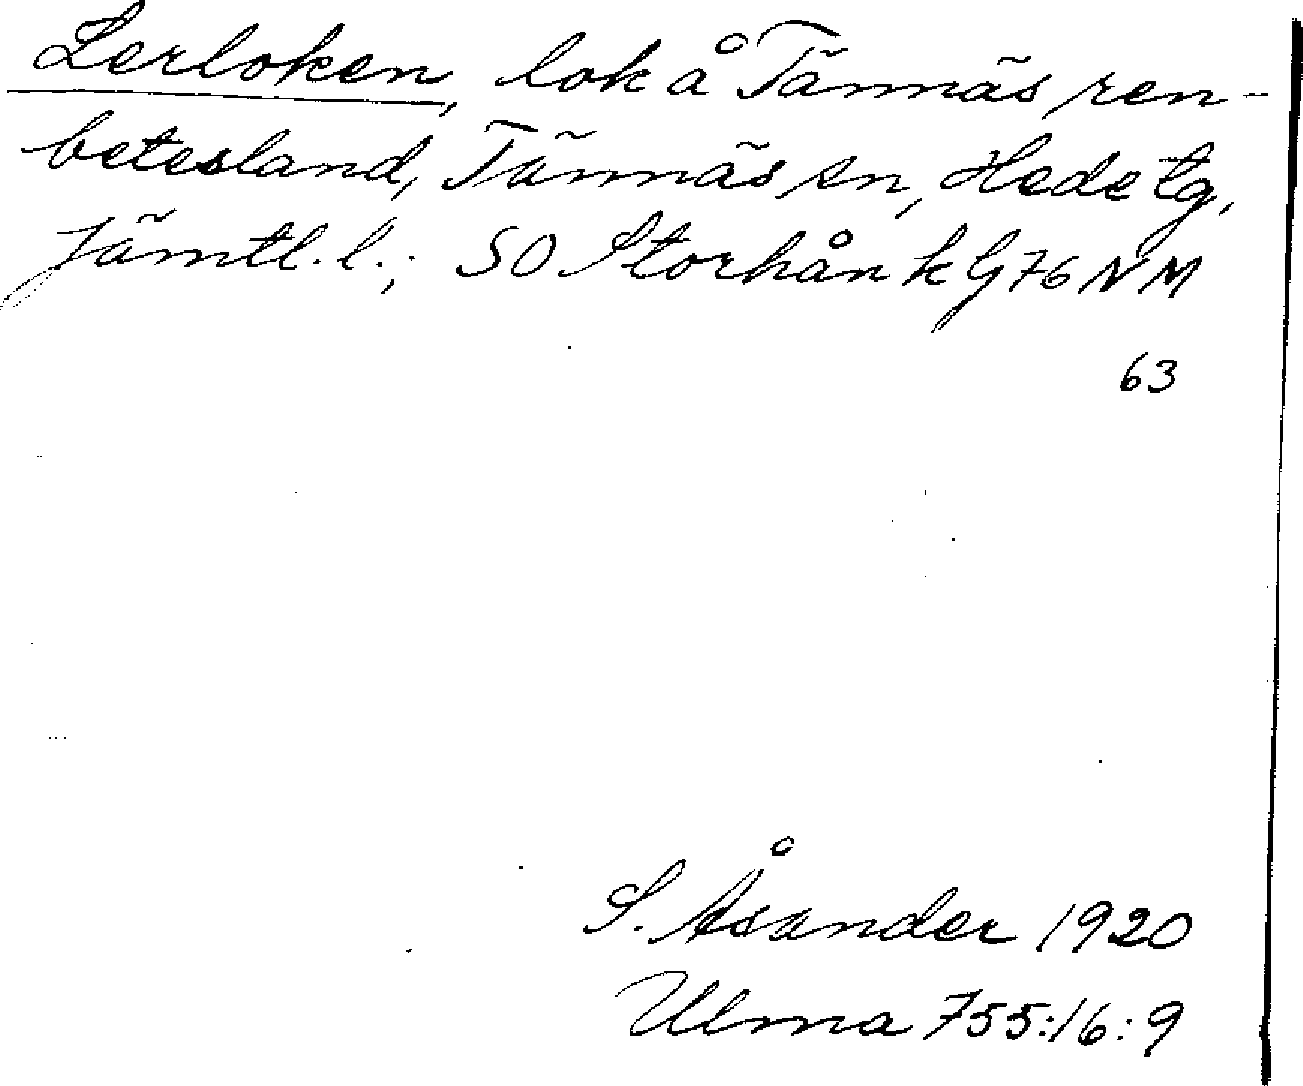 Lerloken, lok å Tännäs ren-
betesland, Tännäs sn, Hede tg,
Jämtl. l.; SO Storhån k G 76 NM
63
S. Åsander 1920
Ulma 755:16:9